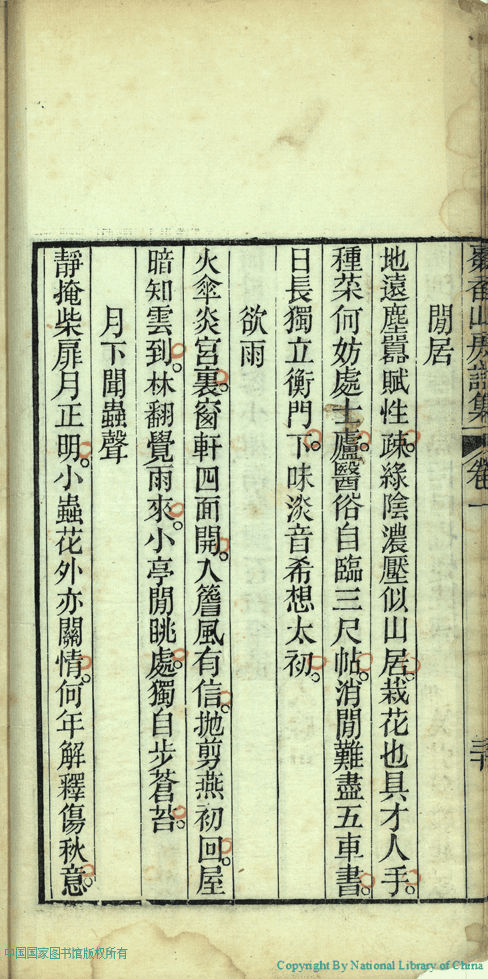 香山房詩集 卷一
閒居
地遠塵囂賦性疎。綠陰濃壓似山居。栽花也具才人手。
種菜何妨處士廬。醫俗自臨三尺帖。消閒難盡五車書。
日長獨立衡門下。味淡音希想太初。
欲雨
火傘炎宮裏。窗軒四面開。入簷風有信。拋剪燕初回。屋
暗知雲到。林翻覺雨來。小亭閒眺處。獨自步蒼苔。
月下聞蟲聲
靜掩柴扉月正明。小蟲花外亦關情。何年解釋傷秋意。
中国国家图书馆版权所有
Copyright By National Library of China